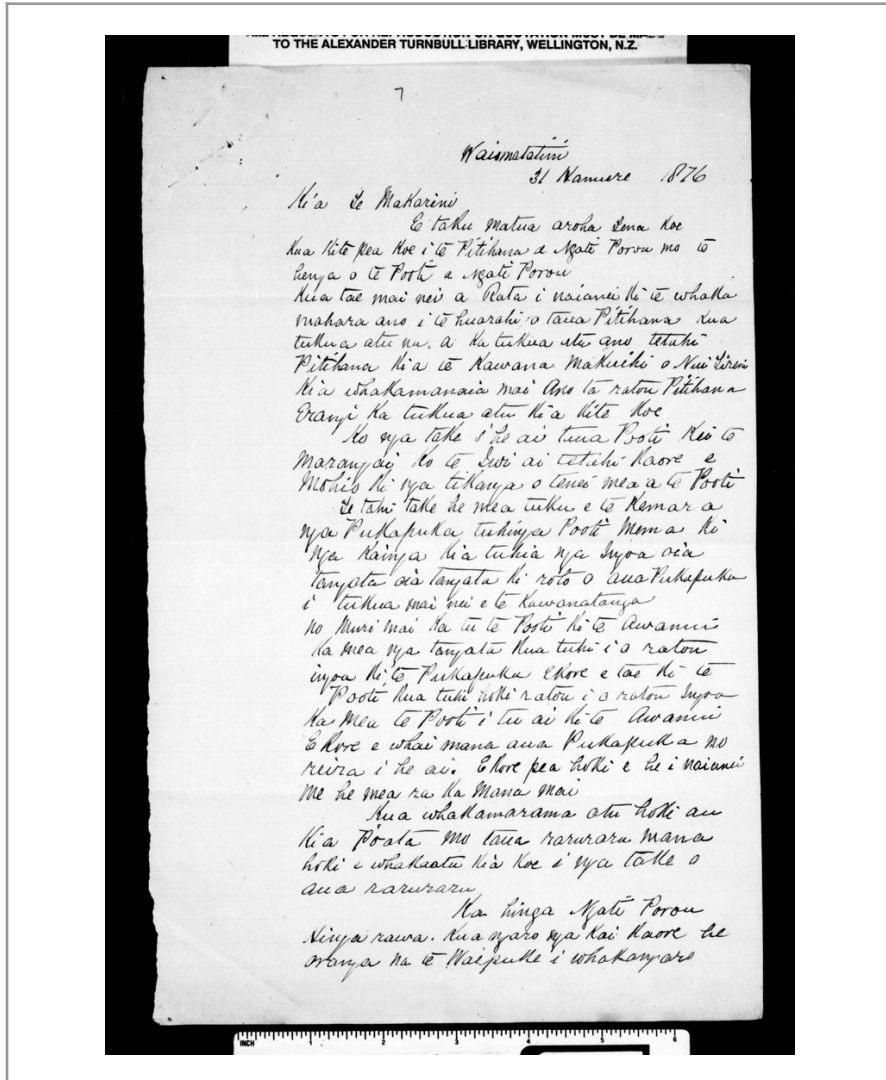 TO THE ALEXANDER TURNBULL LIBRARY, WELLINGTON, N.Z.
7
Waiomatatini
31 Hanuere 1876
Ki a Te Makarini
E taku Matua aroha Tena Koe
Kua Kite pea Koe i te Pitihana a Ngati Porou mo te
henga o te Pooti a Ngati Porou
Kua tae mai nei a Rata i naianei Ki te whaka
mahara ano i te huarahi o taua Pitihana Kua
tukua atu na. a Ka tukua atu ano tetahi
Pitihana Ki a te Kawana Makuihi o Nui Tireni
Kia whakamanaia mai Ano ta ratou Pitihana
Erangi Ka tukua atu Kia Kite Koe
Ko nga take i he ai tena Pooti Kei te
Marangai Ko te Iwi ai tetahi Kaore e
Mohio Ki nga tikanga o tenei mea a te Pooti
Te tahi take he mea tuku e te Kemara
nga Pukapuka tuhinga Pooti Mema Ki
nga Kainga Kia tuhia nga Ingoa oia
tangata oia tangata Ki roto o aua Pukapuka
i tukua mai nei e te Kawanatanga
no Muri mai Ka tu te Pooti Ki te Awanui
Ka mea nga tangata Kua tuhi i o ratou
ingoa Ki te Pukapuka Ekore e tae Ki te
Pooti Kua tuhi hoki ratou i o ratou Ingoa
Ka Mea te Pooti i tu ai Ki te Awanui
Ekore e whai mana aua Pukapuka no
reira i he ai. Ekore pea hoki e he i naianei
Me he mea ra Ka Mana mai
Kua whakamarama atu hoki au
Kia Poata Mo taua raruraru Mana
hoki e whakaatu Kia Koe i nga take o
aua raruraru
Ka hinga Ngati Porou
hinga rawa. Kua ngaro nga Kai Kaore he
oranga na te Waipuke i whakangaro
INCH 1 2 3 4 5 6